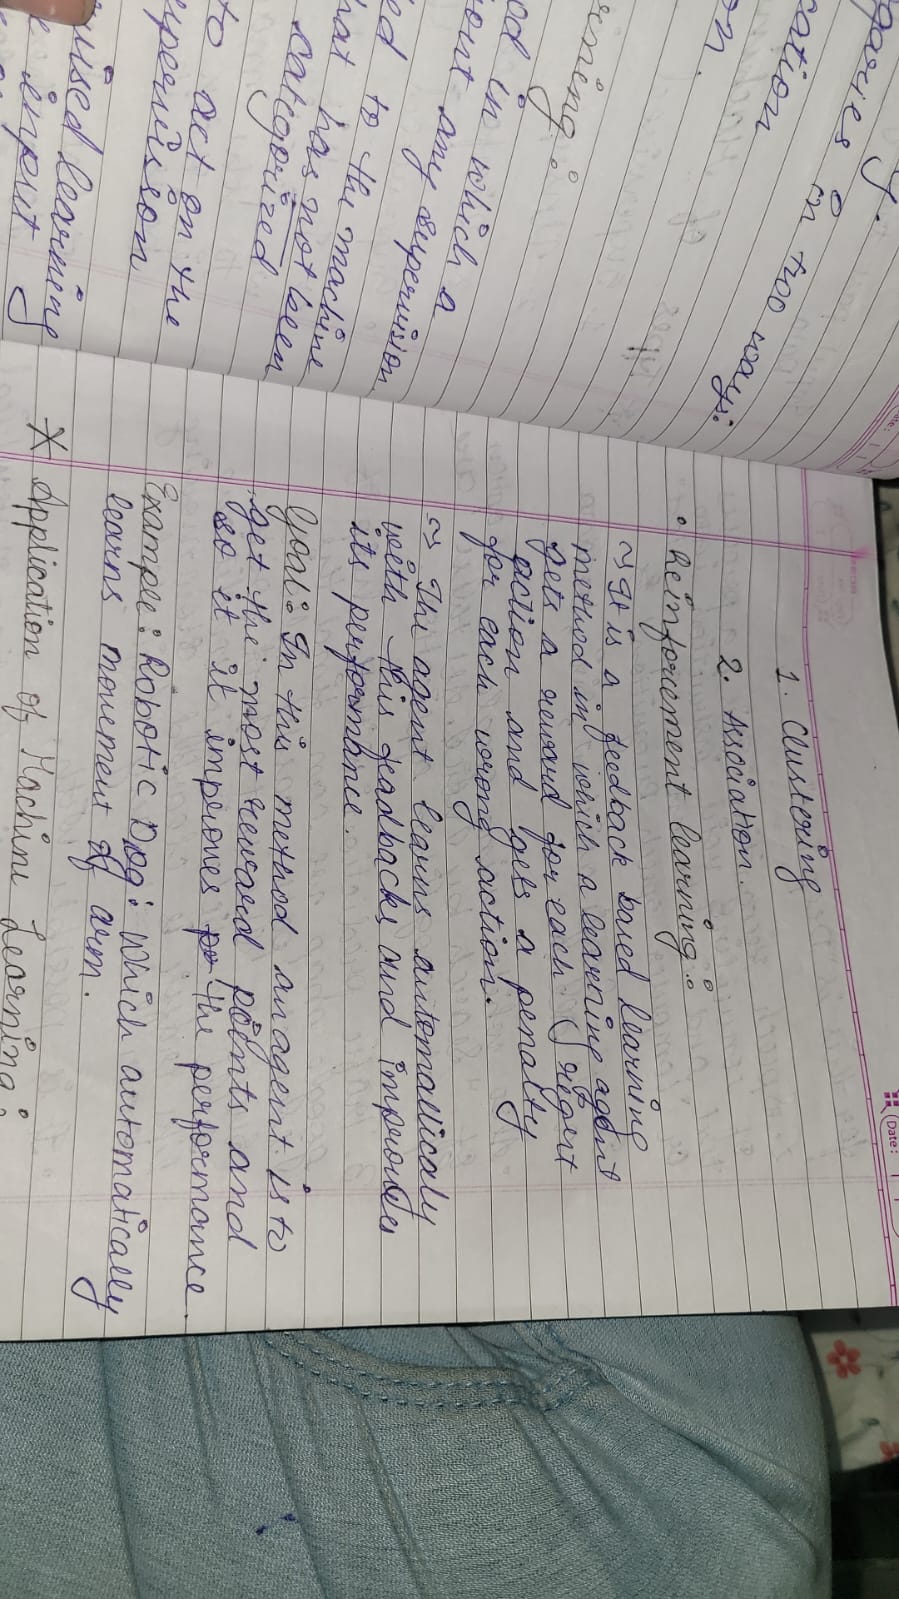 y.
garies in two ways:
cation
on.
rning:
od in which a
out any supervision
ed to the machine
hat has not been
categorized
to act on the
upervision
vised learning
input
Date:
1. Clustering
2. Association.
• Reinforcement learning:
~> It is a feedback based learning
method in which a learning agent
gets a reward for each right
action and gets a penalty
for each wrong action.
~> The agent learns automallicaly
with this feadbacks and improves
its performance.
Goal: In this method an agent is to
get the most reward points and
so it it improves the performance.
Example: Robotic Dog: Which automatically
learns movement of arm.
* Application of Machine Learning: